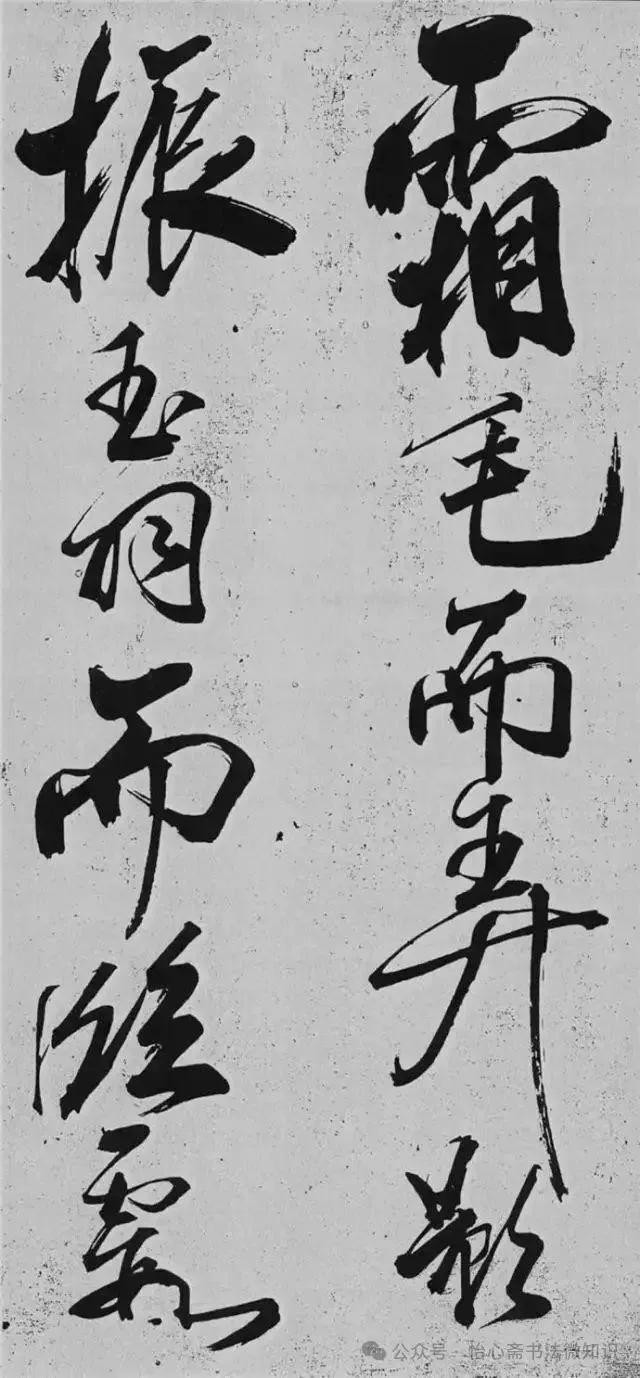 霜毛而弄影
振玉羽而臨霞
公众号 · 怡心斋书法微知识